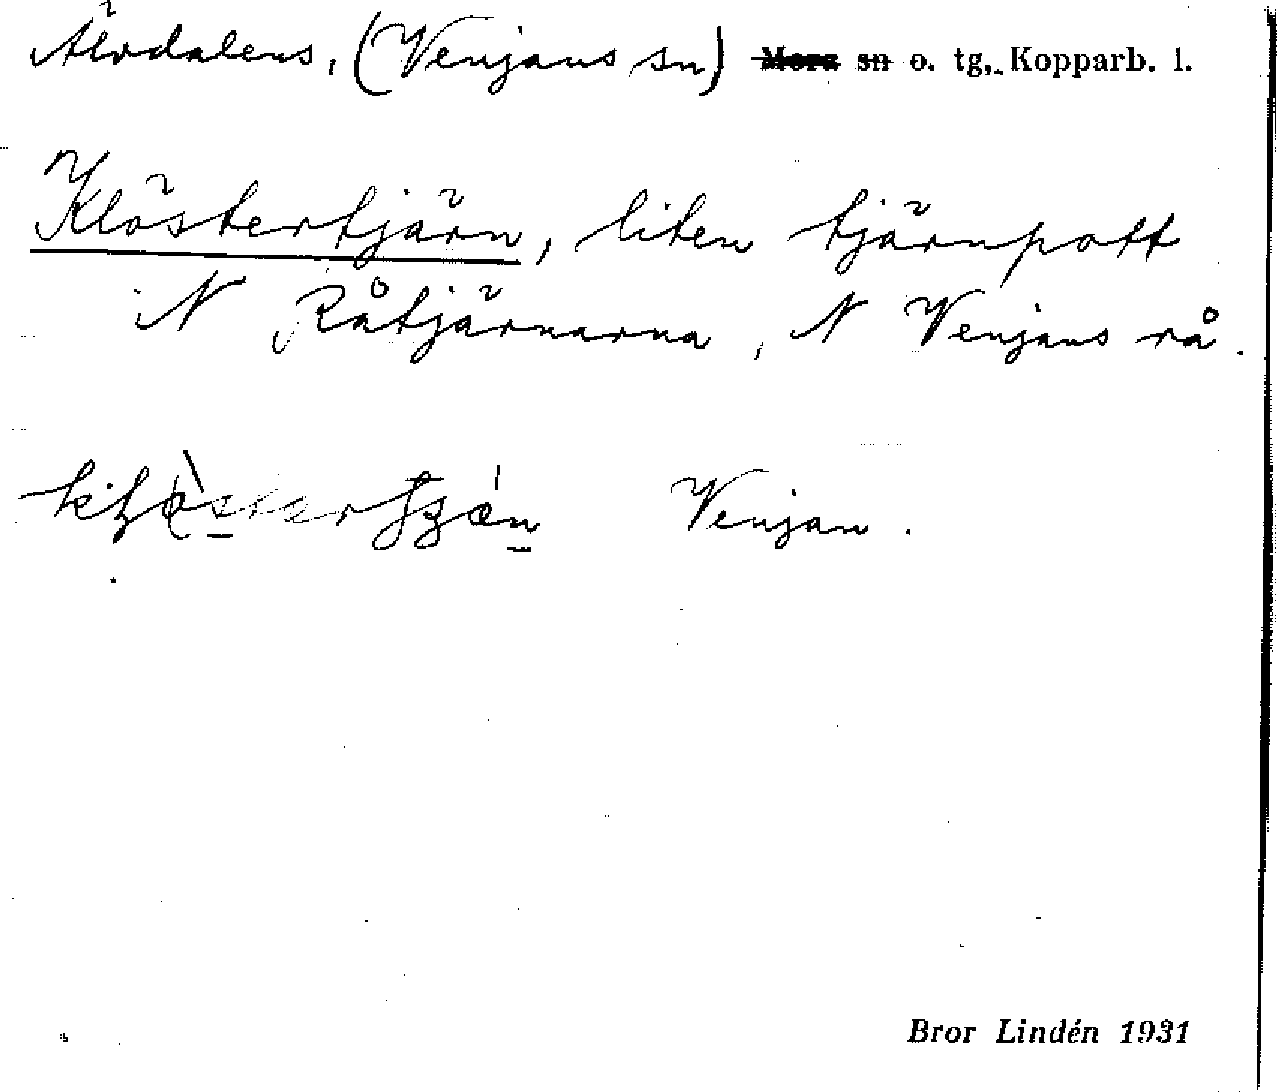 Älvdalens, (Venjans sn) Mora sn o. tg., Kopparb. l.
Klöstertjärn, liten tjärnpott
N Råtjärnarna, N Venjans rå.
Venjan.
Bror Lindén 1931